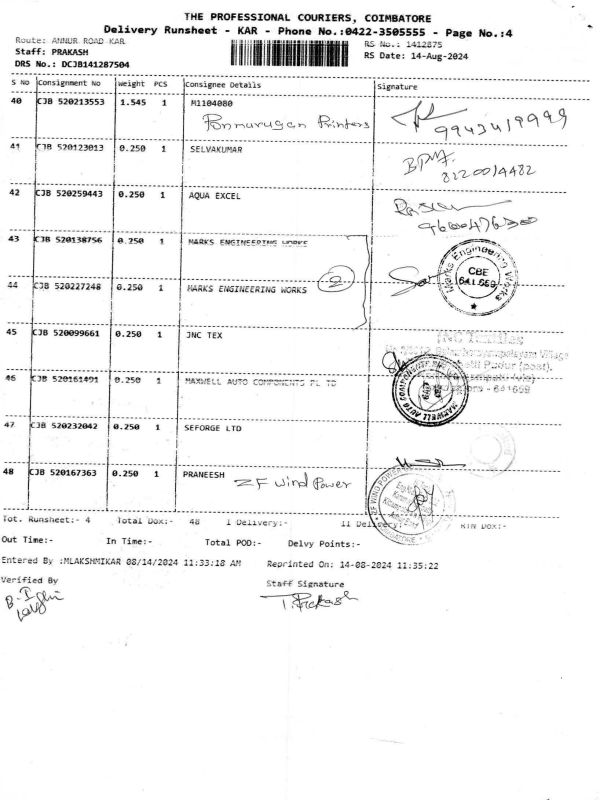 THE PROFESSIONAL COURIERS, COIMBATORE
Delivery Runsheet - KAR - Phone No.:0422-3505555 - Page No.:4
Route: ANNUR ROAD KAR
RS No.: 1412875
Staff: PRAKASH
RS Date: 14-Aug-2024
DRS No.: DCJB141287504
S No Consignment No Weight PCS Consignee Details Signature
40 CJB 520213553 1.545 1 M1104080
Ponmurugan Printers
9943419999
41 CJB 520123013 0.250 1 SELVAKUMAR
8220014482
42 CJB 520259443 0.250 1 AQUA EXCEL
9600476300
43 CJB 520138756 0.250 1 MARKS ENGINEERING WORKS
2
Marks Engineering Works
CBE
641 659
44 CJB 520227248 0.250 1 MARKS ENGINEERING WORKS
45 CJB 520099661 0.250 1 JNC TEX
JNC Textiles
Village
Pudur (post),
- 641659
46 CJB 520161491 0.250 1 MAXWELL AUTO COMPONENTS PL TD
MAXWELL AUTO COMPONENTS
47 CJB 520232042 0.250 1 SEFORGE LTD
48 CJB 520167363 0.250 1 PRANEESH ZF Wind Power
ZF WIND POWER
COIMBATORE
Tot. Runsheet:- 4 Total Dox:- 48 I Delivery:- II Delivery:- RTN Dox:-
Out Time:- In Time:- Total POD:- Delvy Points:-
Entered By :MLAKSHMIKAR 08/14/2024 11:33:18 AM Reprinted On: 14-08-2024 11:35:22
Verified By
Staff Signature
T. Prakash